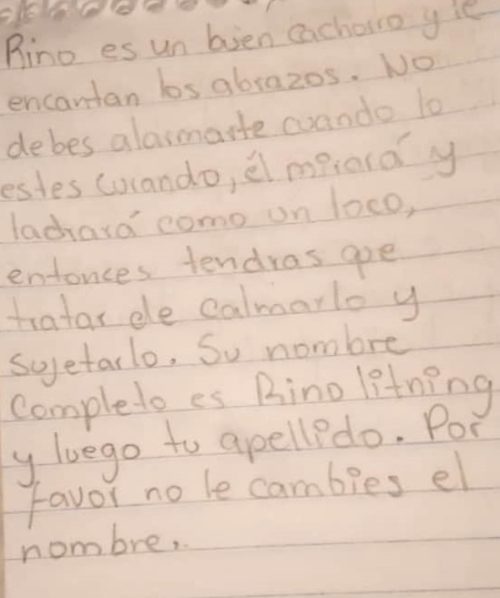 Rino es un buen cachorro y le
encantan los abrazos. No
debes alarmarte cuando lo
estes curando, él morará y
ladrará como un loco,
entonces tendras que
tratar de calmarlo y
sujetarlo. Su nombre
completo es Rino litning
y luego tu apellido. Por
favor no le cambies el
nombre.